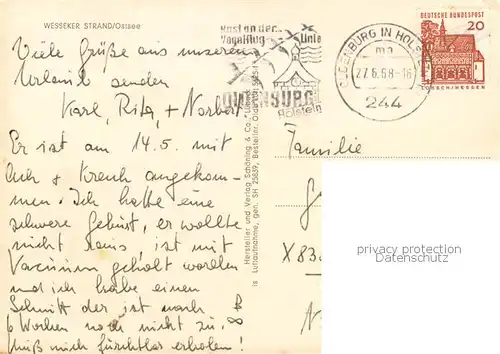 WESSEKER STRAND/Ostsee
Rast an der...
Vogelflug Linie
OLDENBURG
Holstein
OLDENBURG IN HOLSTEIN
ma
27.6.68-16
244
DEUTSCHE BUNDESPOST
20
LORSCH/HESSEN
Viele Grüße aus unserem
Urlaub senden
Karl, Rita, + Norbert
Er ist am 14.5. mit
Ach + Krach angekom-
men. Ich hatte eine
schwere Geburt, er wollte
nicht raus, ist mit
Vacuum geholt worden
und ich habe einen
Schnitt der ist nach
6 Wochen noch nicht zu.
Muß mich fürchtbar erholen!
Hersteller und Verlag Schöning & Co., Lübeck
Luftaufnahme, gen. SH 25839, Bestellnr. Oldbg
Familie
X83
privacy protection
Datenschutz